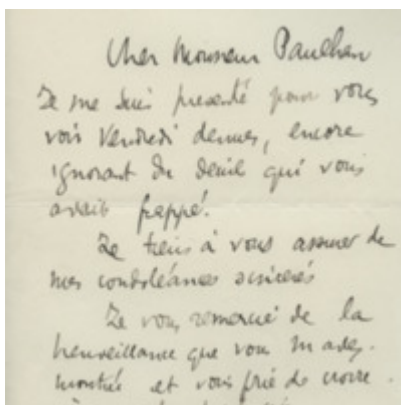 Cher Monsieur Paulhan
Je me suis presenté pour vous
voir Vendredi dernier, encore
ignorant du deuil qui vous
avait frappé.
Je tiens à vous assurer de
mes condoléances sincères
Je vous remercie de la
bienveillance que vous m'avez
montrée et vous prie de croire